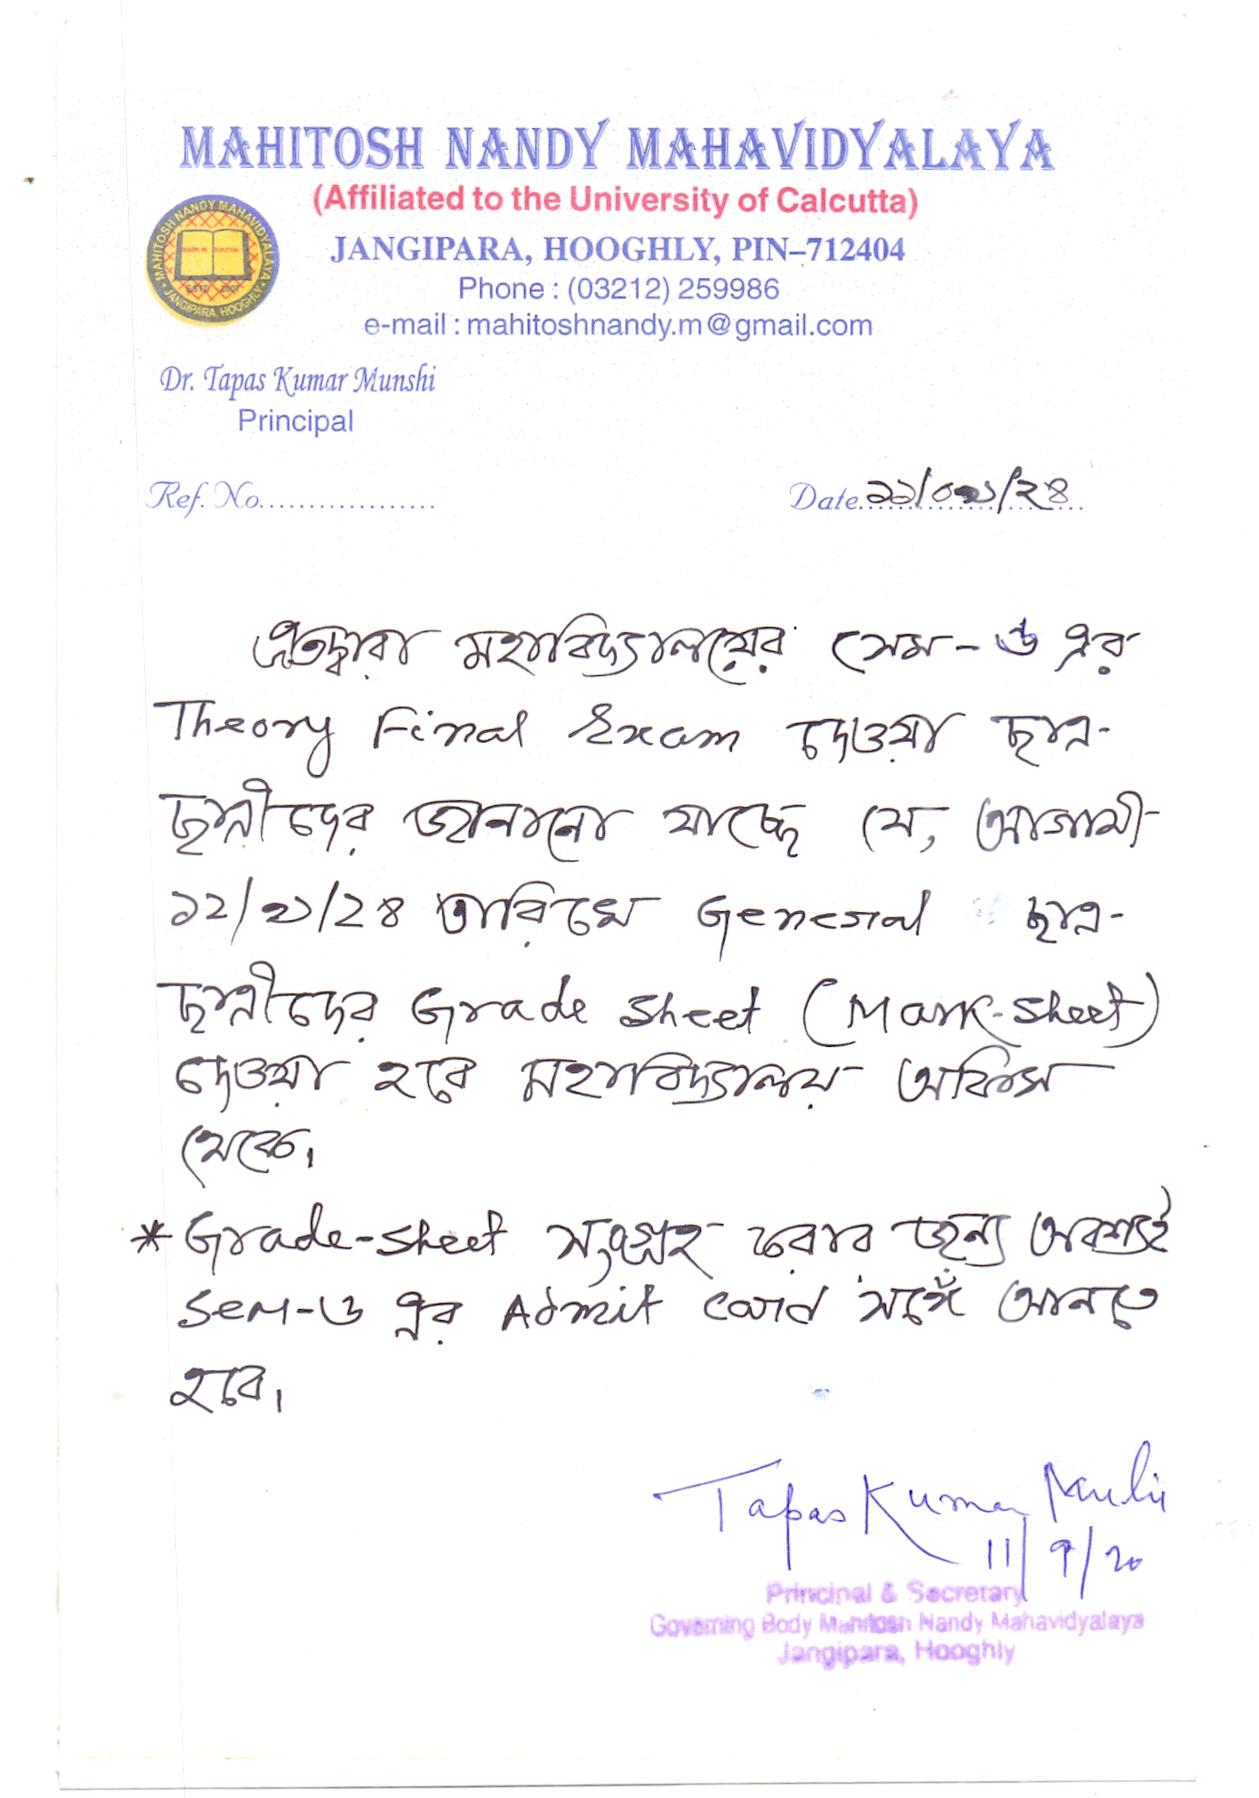 MAHITOSH NANDY MAHAVIDYALAYA
(Affiliated to the University of Calcutta)
JANGIPARA, HOOGHLY, PIN–712404
Phone : (03212) 259986
e-mail : mahitoshnandy.m@gmail.com
MAHITOSH NANDY MAHAVIDYALAYA
ESTD 2007
JANGIPARA, HOOGHLY
Dr. Tapas Kumar Munshi
Principal
Ref. No..................
Date.১১/০৯/২৪
এতদ্বারা মহাবিদ্যালয়ের সেম-৬ এর
Theory Final Exam দেওয়া ছাত্র-
ছাত্রীদের জানানো যাচ্ছে যে, আগামী
১২/৯/২৪ তারিখে General ছাত্র-
ছাত্রীদের Grade sheet (Mark-sheet)
দেওয়া হবে মহাবিদ্যালয় অফিস
থেকে।
* Grade-sheet সংগ্রহ করার জন্য অবশ্যই
Sem-৬ এর Admit card সঙ্গে আনতে
হবে।
Tapas Kumar Munshi
11/9/20
Principal & Secretary
Governing Body Mahitosh Nandy Mahavidyalaya
Jangipara, Hooghly